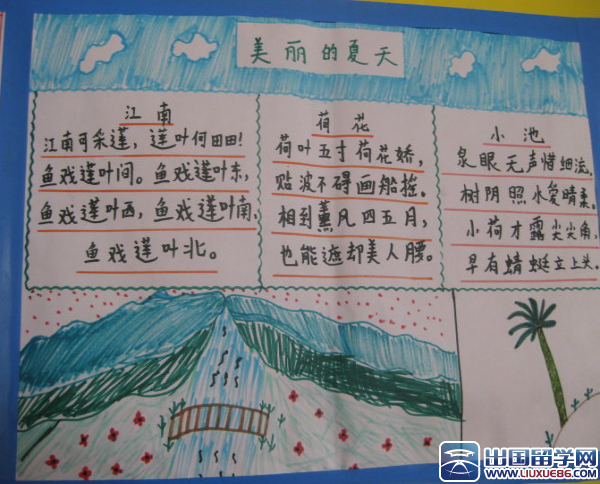 美丽的夏天
江南
江南可采莲，莲叶何田田！
鱼戏莲叶间。鱼戏莲叶东，
鱼戏莲叶西，鱼戏莲叶南，
鱼戏莲叶北。
荷花
荷叶五寸荷花娇，
贴波不碍画船摇。
相到薰风四五月，
也能遮却美人腰。
小池
泉眼无声惜细流，
树阴照水爱晴柔。
小荷才露尖尖角，
早有蜻蜓立上头。
出国留学网
WWW.LIUXUE86.COM